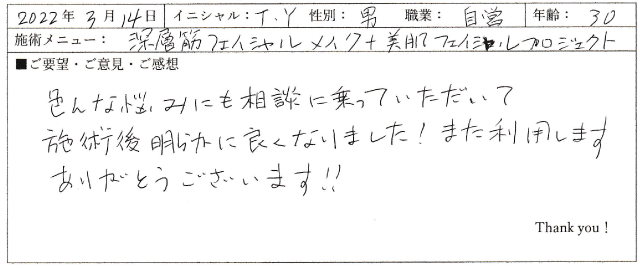 2022年 3月 14日 イニシャル：T.Y 性別：男 職業：自営 年齢：30
施術メニュー：深層筋フェイシャルメイク+美肌フェイシャルプロジェクト
■ご要望・ご意見・ご感想
色んな悩みにも相談に乗っていただいて
施術後明らかに良くなりました！また利用します
ありがとうございます!!
Thank you！